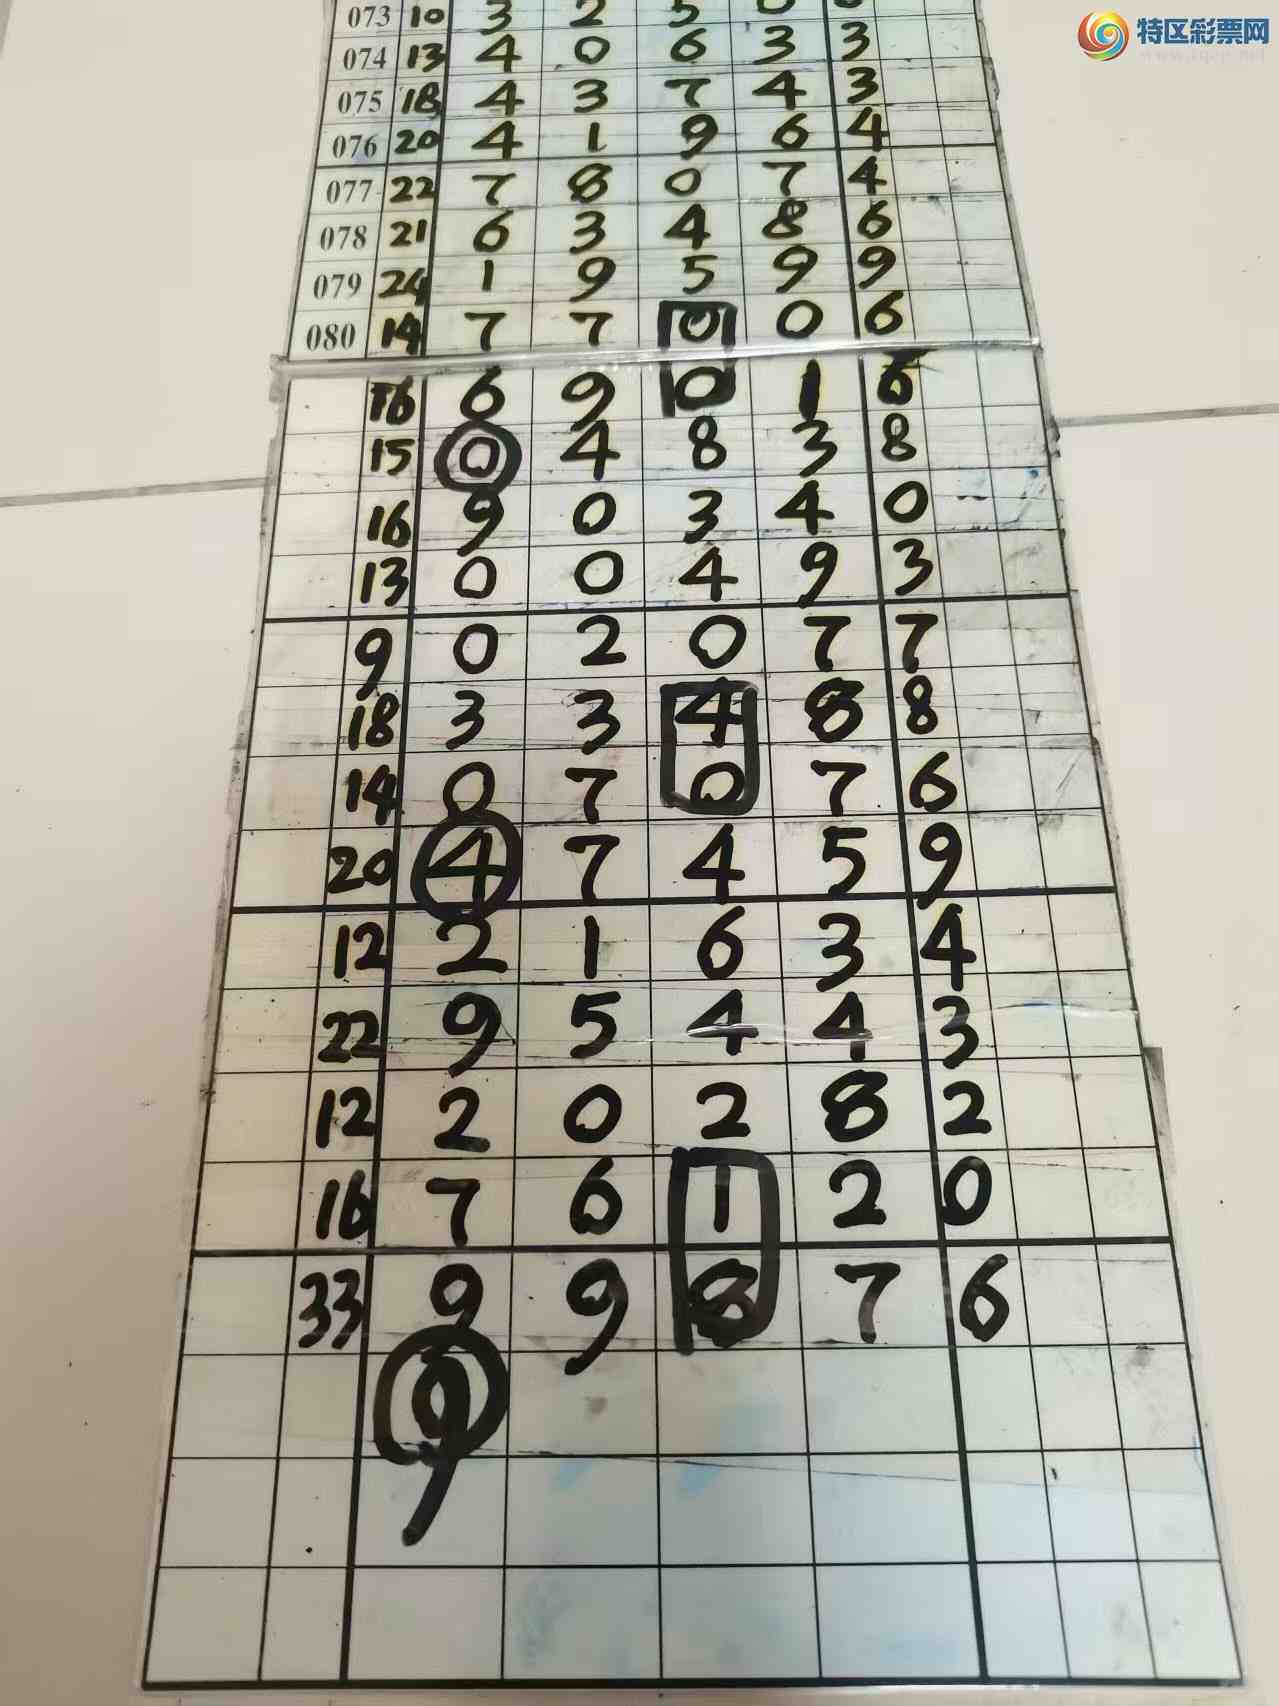 特区彩票网
073 10 3 2 5 0
074 13 4 0 6 3 3
075 18 4 3 7 4 3
076 20 4 1 9 6 4
077 22 7 8 0 7 4
078 21 6 3 4 8 6
079 24 1 9 5 9 9
080 14 7 7 0 0 6
16 6 9 0 1 6
15 0 4 8 3 8
16 9 0 3 4 0
13 0 0 4 9 3
9 0 2 0 7 7
18 3 3 4 8 8
14 0 7 0 7 6
20 4 7 4 5 9
12 2 1 6 3 4
22 9 5 4 4 3
12 2 0 2 8 2
16 7 6 1 2 0
33 9 9 8 7 6
9